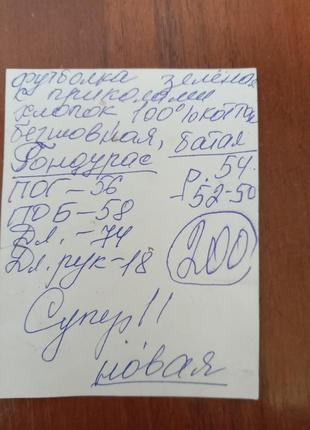 футболка зелёная
с приколами
хлопок 100% коттон
бесшовная, батал
Гондурас р. 54.
ПОГ-56 52-50
ПОБ-58
Дл. - 74
Дл. рук-18 200
Супер!!
новая